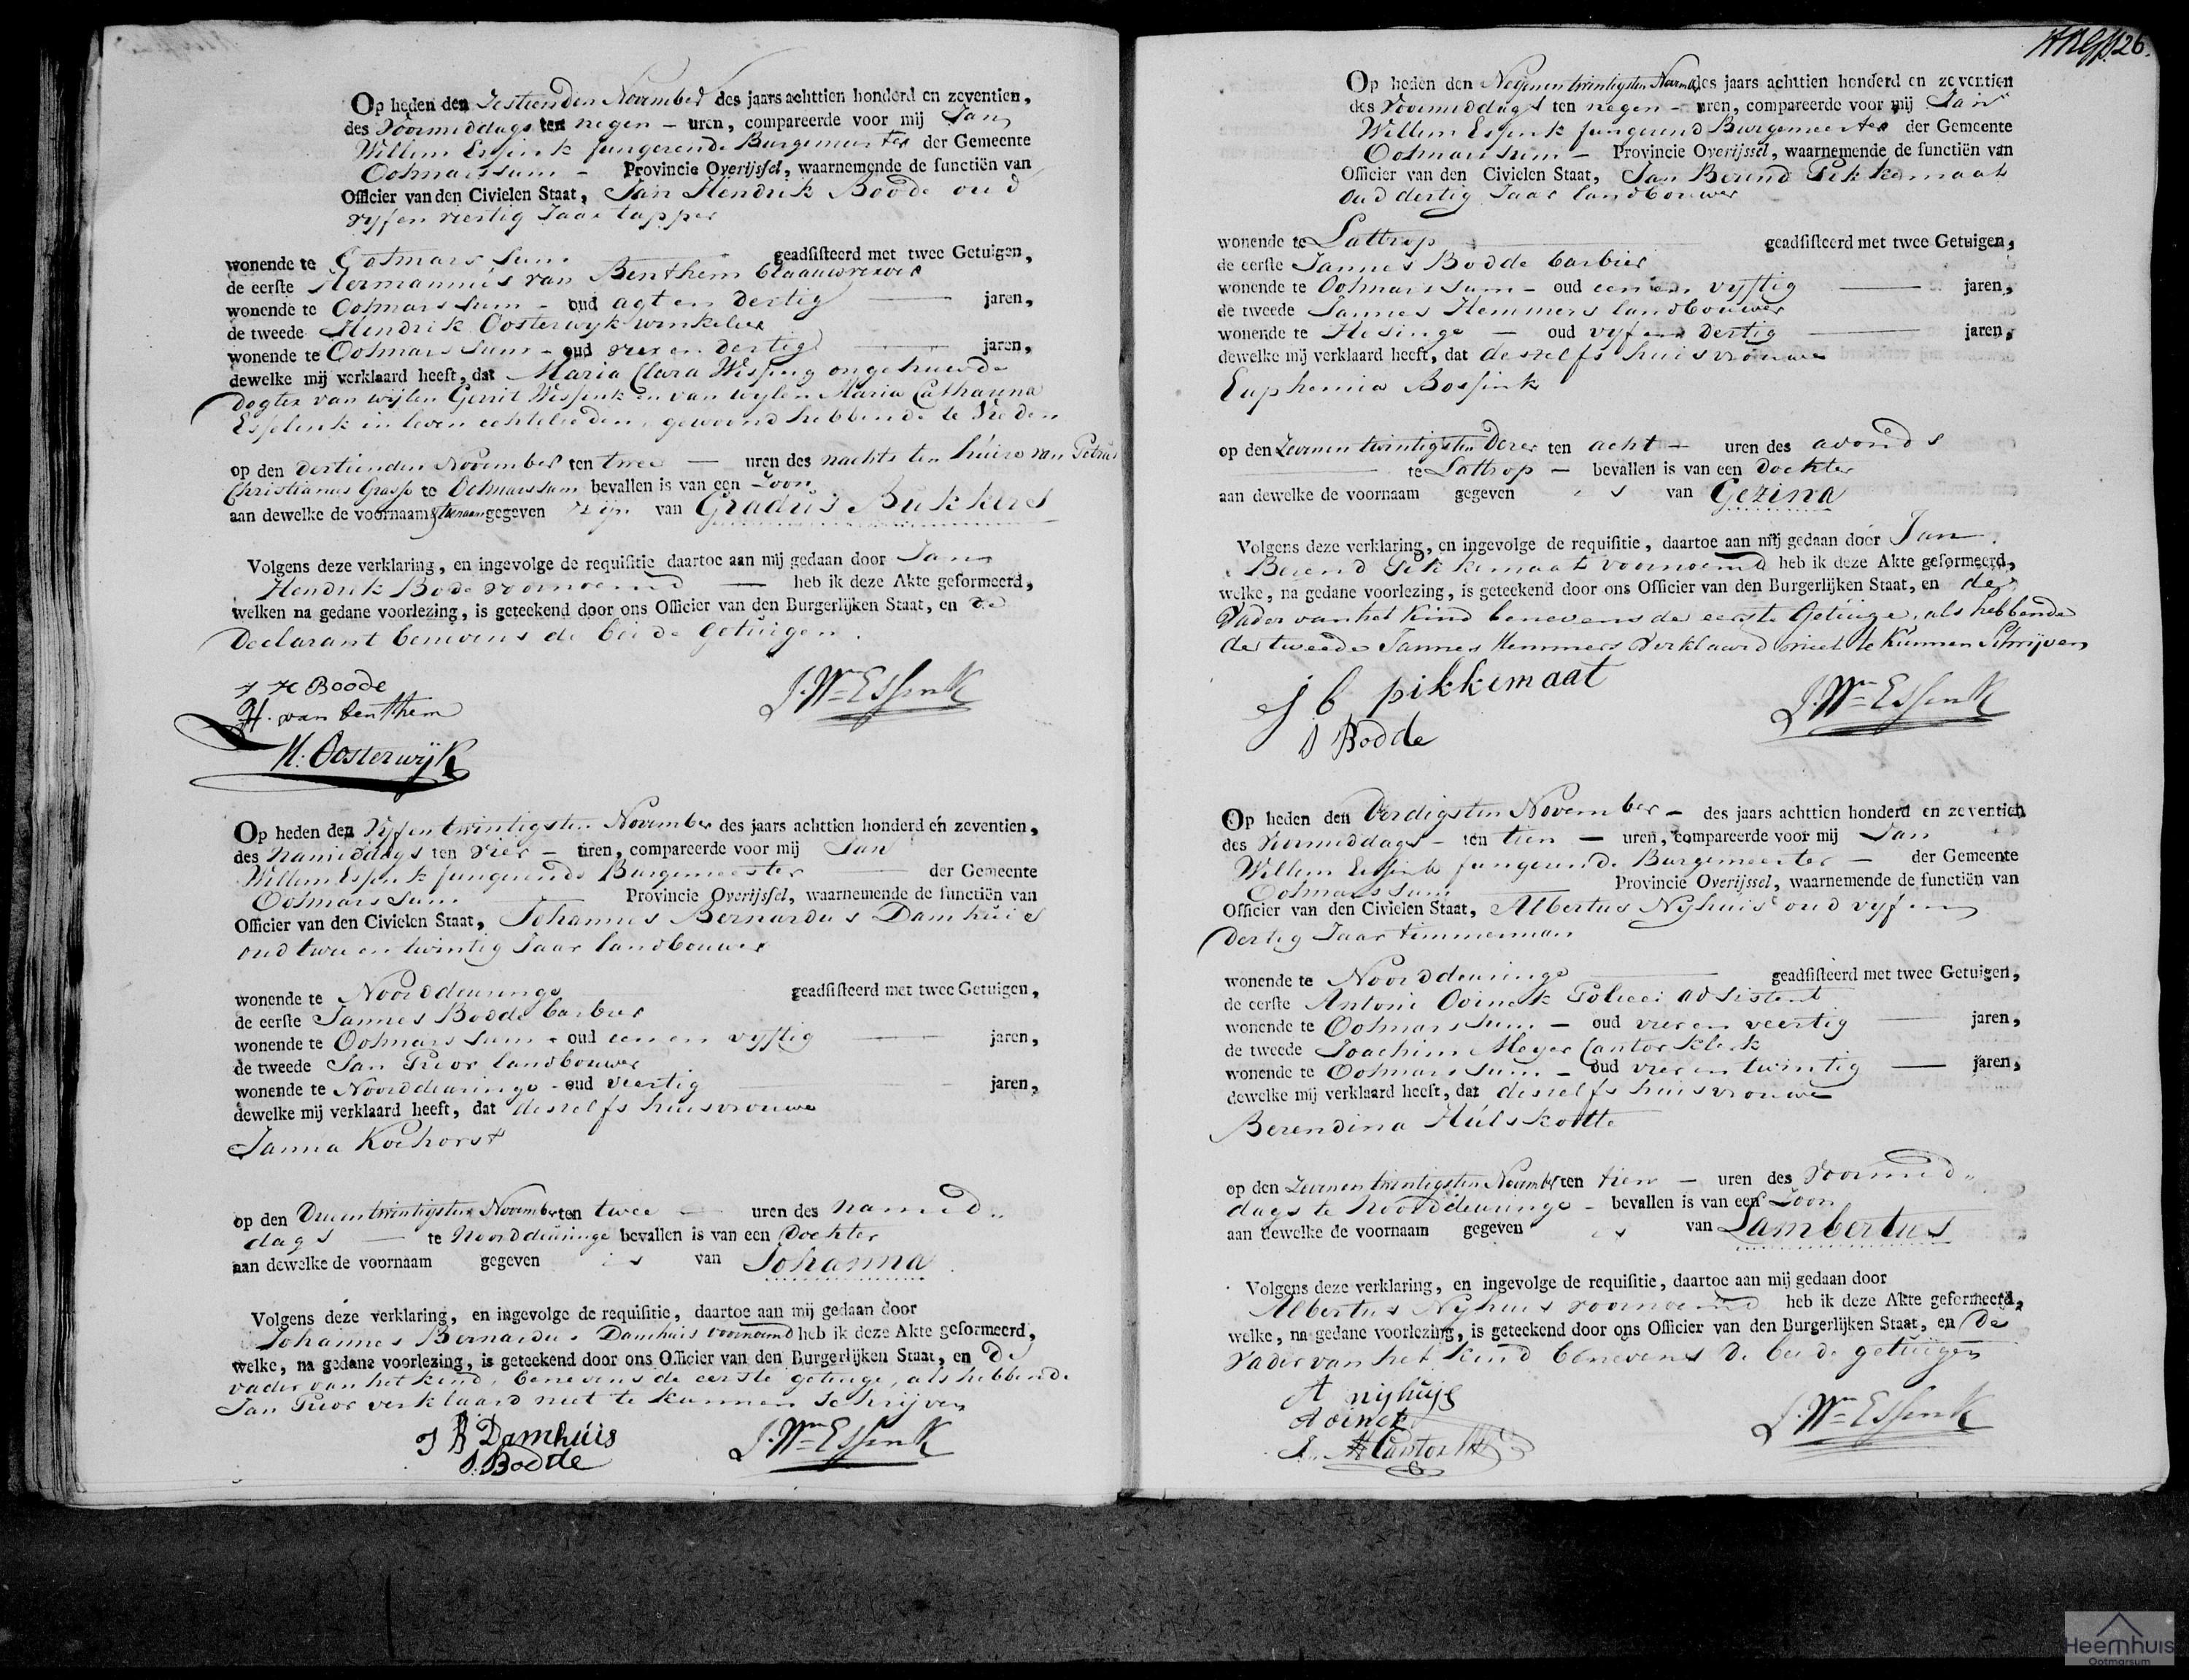 Op heden den Sestienden November des jaars achttien honderd en zeventien,
des Voormiddags ten negen – uren, compareerde voor mij Jan
Willem Essink fungerende Burgemeester der Gemeente
Ootmarssum – Provincie Overijssel, waarnemende de functiën van
Officier van den Civielen Staat, Jan Hendrik Boode oud
vyf en viertig Jaar tapper
wonende te Ootmarssum geadsisteerd met twee Getuigen,
de eerste Hermannus van Benthem blaauwverver
wonende te Ootmarssum – oud agt en dertig jaren,
de tweede Hendrik Oosterwyk winkelier
wonende te Ootmarssum – oud vier en dertig jaren,
dewelke mij verklaard heeft, dat Maria Clara Wissing ongehuwde
dogter van wijlen Gerrit Wissink en van wylen Maria Catharina
Esselink in leven echtelieden, gewoond hebbende te Vreden
op den dertienden November ten twee – uren des nachts ten huize van Petrus
Christianus Grasse te Ootmarssum bevallen is van een Zoon
aan dewelke de voornaam gegeven zijn van Gradus Bukkers
Volgens deze verklaring, en ingevolge de requisitie daartoe aan mij gedaan door Jan
Hendrik Bode voornoemd — heb ik deze Akte geformeerd,
welken na gedane voorlezing, is geteekend door ons Officier van den Burgerlijken Staat, en de
Declarant benevens de beide Getuigen.
J H Boode
H. van Benthem
J. Wm Essink
H. Oosterwijk
Op heden den Vyfentwintigsten November des jaars achttien honderd en zeventien,
des Namiddags ten vier – uren, compareerde voor mij Jan
Willem Essink fungerende Burgemeester der Gemeente
Ootmarssum Provincie Overijssel, waarnemende de functiën van
Officier van den Civielen Staat, Johannes Bernardus Damhuis
oud twee en twintig Jaar landbouwer
wonende te Noorddeuringe geadsisteerd met twee Getuigen,
de eerste Jannes Bodde barbier
wonende te Ootmarssum – oud een en vyftig jaren,
de tweede Jan Prior landbouwer
wonende te Noorddeuringe – oud veertig jaren,
dewelke mij verklaard heeft, dat deszelfs huisvrouwe
Janna Koehorst
op den Drieentwintigsten November ten twee – uren des Namid-
dags — te Noorddeuringe bevallen is van een Dochter
aan dewelke de voornaam gegeven is van Johanna
Volgens deze verklaring, en ingevolge de requisitie, daartoe aan mij gedaan door
Johannes Bernardus Damhuis voornoemd heb ik deze Akte geformeerd,
welke, na gedane voorlezing, is geteekend door ons Officier van den Burgerlijken Staat, en De
vader van het kind, benevens de eerste getuige, als hebbende
Jan Prior verklaard niet te kunnen schrijven
J B Damhuis
J. Bodde
J. Wm Essink
26.
Op heden den Negenentwintigsten Novemb des jaars achttien honderd en zeventien
des Voormiddags ten negen – uren, compareerde voor mij Jan
Willem Essink fungerend Burgemeester der Gemeente
Ootmarssum – Provincie Overijssel, waarnemende de functiën van
Officier van den Civielen Staat, Jan Berend Pikkemaat
oud dertig Jaar landbouwer
wonende te Lattrop geadsisteerd met twee Getuigen,
de eerste Jannes Bodde barbier
wonende te Ootmarssum – oud een en vyftig jaren,
de tweede Jannes Hemmers landbouwer
wonende te Hesinge – oud vyf en dertig jaren,
dewelke mij verklaard heeft, dat deszelfs huisvrouwe
Euphemia Bossink
op den Zevenentwintigsten Dezer ten acht – uren des avonds
te Lattrop – bevallen is van een Dochter
aan dewelke de voornaam gegeven is van Gezina
Volgens deze verklaring, en ingevolge de requisitie, daartoe aan mij gedaan door Jan
Berend Pikkemaat voornoemd heb ik deze Akte geformeerd,
welke, na gedane voorlezing, is geteekend door ons Officier van den Burgerlijken Staat, en de
Vader van het Kind benevens de eerste Getuige, als hebbende
de tweede Jannes Hemmers Verklaard niet te Kunnen Schrijven
J B pikkemaat
J Bodde
J. Wm Essink
Op heden den Dertigsten November – des jaars achttien honderd en zeventien
des Voormiddags – ten tien – uren, compareerde voor mij Jan
Willem Essink fungerende Burgemeester – der Gemeente
Ootmarssum Provincie Overijssel, waarnemende de functiën van
Officier van den Civielen Staat, Albertus Nyhuis oud vyf en
dertig Jaar timmerman
wonende te Noorddeuringe geadsisteerd met twee Getuigen,
de eerste Antoni Ovinck Policei adsistent
wonende te Ootmarssum – oud vier en veertig jaren,
de tweede Joachim Meyer Cantor Klerk
wonende te Ootmarssum – oud vier en twintig jaren,
dewelke mij verklaard heeft, dat deszelfs huisvrouwe
Berendina Hulskotte
op den Zevenentwintigsten November ten tien – uren des Voormid-
dags te Noorddeuringe – bevallen is van een Zoon
aan dewelke de voornaam gegeven is van Lambertus
Volgens deze verklaring, en ingevolge de requisitie, daartoe aan mij gedaan door
Albertus Nyhuis voornoemd heb ik deze Akte geformeerd,
welke, na gedane voorlezing, is geteekend door ons Officier van den Burgerlijken Staat, en De
Vader van het Kind benevens de beide getuigen
A nijhuijs
A ovinck
J. Wm Essink
Heemhuis
Ootmarsum